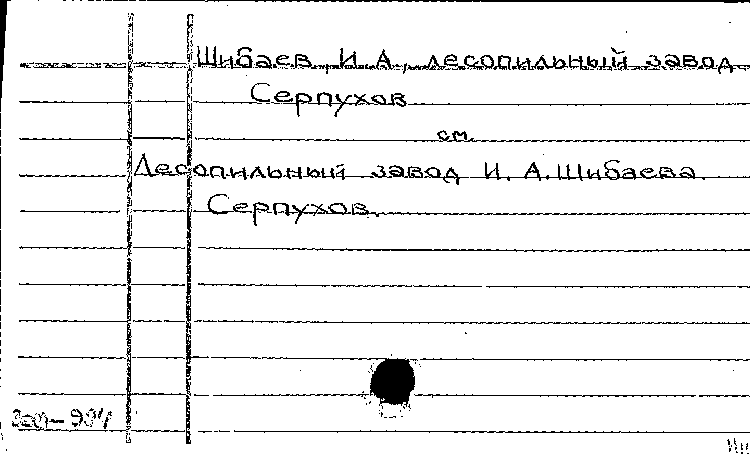 Шибаев, И. А., лесопильный завод
Серпухов
см.
Лесопильный завод И. А. Шибаева.
Серпухов.